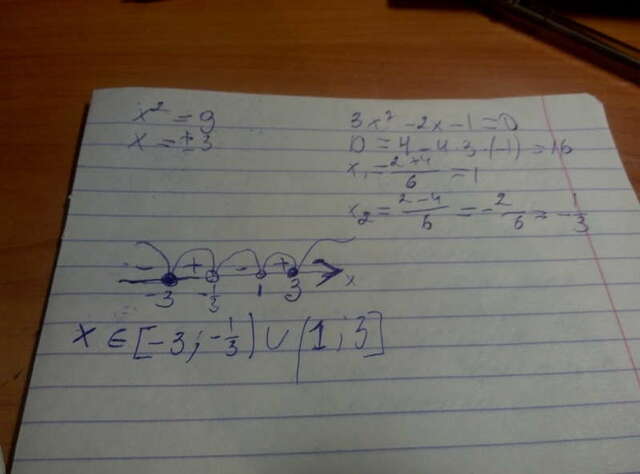 x² = 9
x = ±3
3x² - 2x - 1 = 0
D = 4 - 4·3·(-1) = 16
x₁ = (2+4)/6 = 1
x₂ = (2-4)/6 = -2/6 = -1/3
- + - + x
-3 -1/3 1 3
x ∈ [-3; -1/3) ∪ (1; 3]